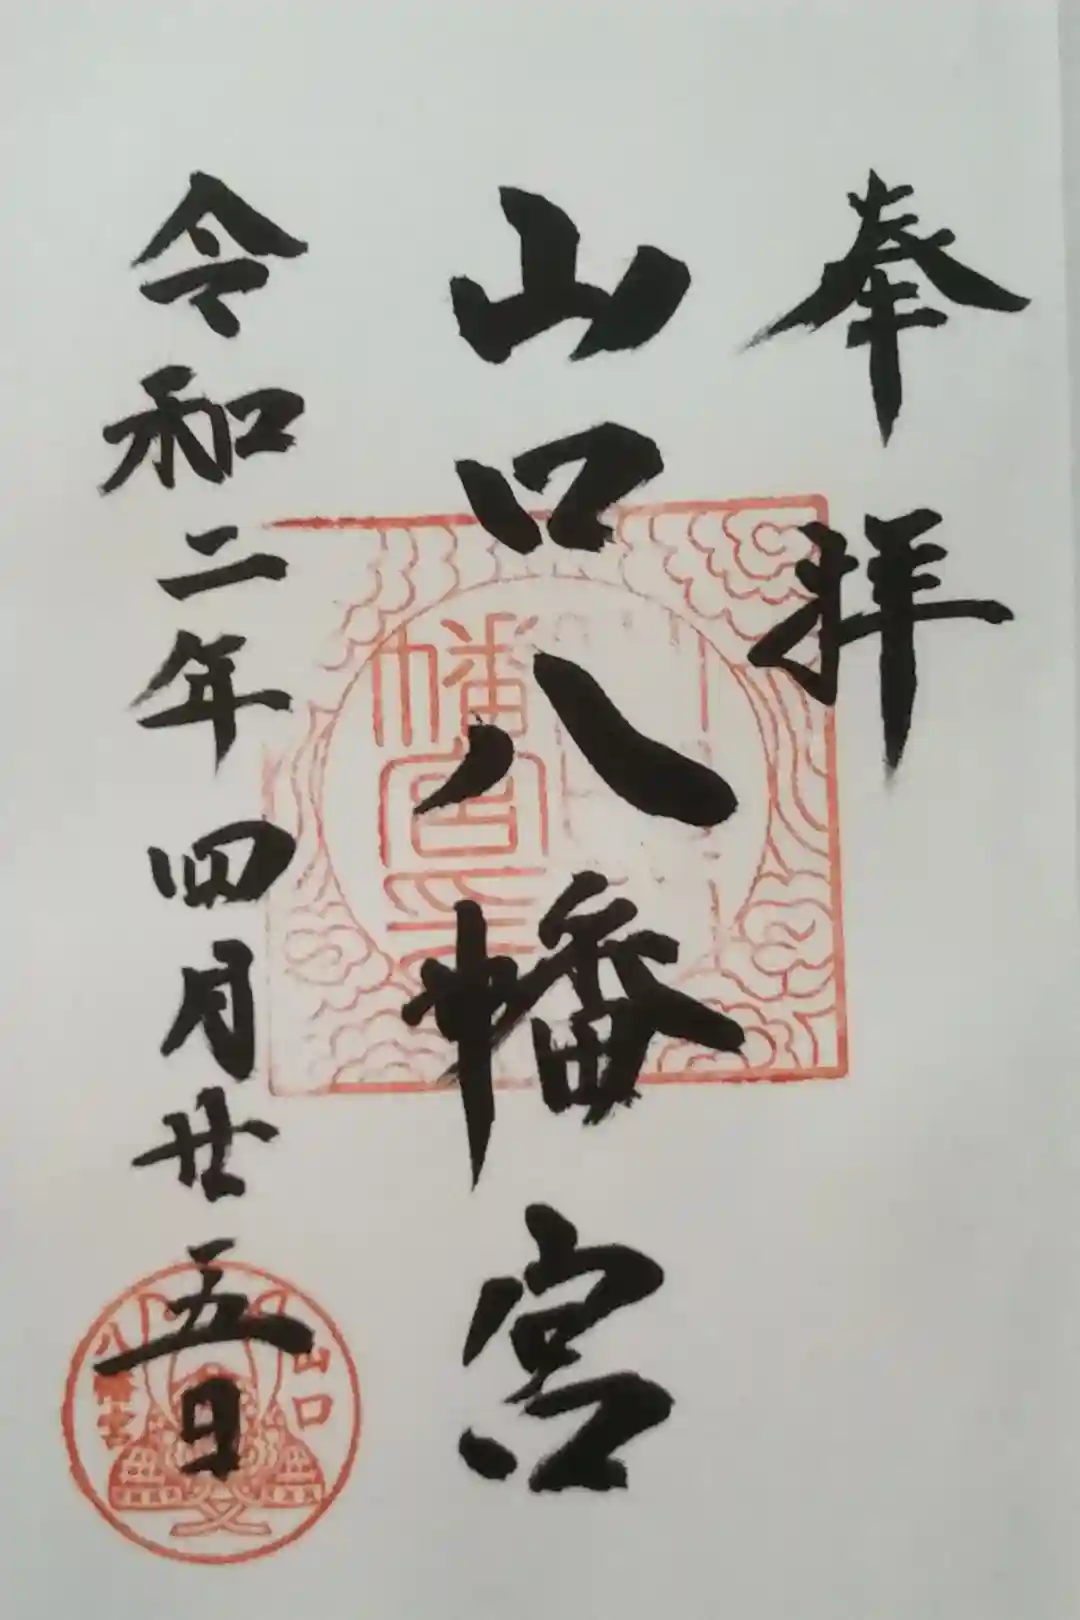 奉拝
山口八幡宮
令和二年四月廿五日
幡宮
山口
八幡宮